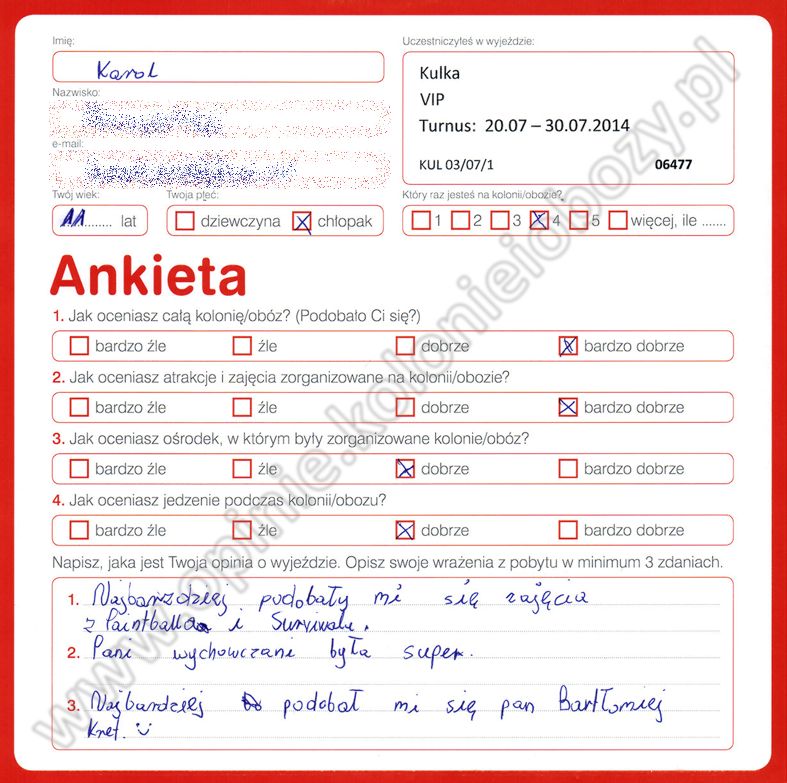 Imię:
Karol
Nazwisko:
e-mail:
Twój wiek:
11 lat
Twoja płeć:
dziewczyna chłopak
Uczestniczyłeś w wyjeździe:
Kulka
VIP
Turnus: 20.07 – 30.07.2014
KUL 03/07/1 06477
Który raz jesteś na kolonii/obozie?
1 2 3 4 5 więcej, ile .......
Ankieta
1. Jak oceniasz całą kolonię/obóz? (Podobało Ci się?)
bardzo źle źle dobrze bardzo dobrze
2. Jak oceniasz atrakcje i zajęcia zorganizowane na kolonii/obozie?
bardzo źle źle dobrze bardzo dobrze
3. Jak oceniasz ośrodek, w którym były zorganizowane kolonie/obóz?
bardzo źle źle dobrze bardzo dobrze
4. Jak oceniasz jedzenie podczas kolonii/obozu?
bardzo źle źle dobrze bardzo dobrze
Napisz, jaka jest Twoja opinia o wyjeździe. Opisz swoje wrażenia z pobytu w minimum 3 zdaniach.
1. Najbarzdziej podobały mi się zajęcia
z Paintballa i Survivalu.
2. Pani wychowczani była super.
3. Najbardziej podobał mi się pan Bartłomiej
Kret.
www.opinie.kolonieiobozy.pl